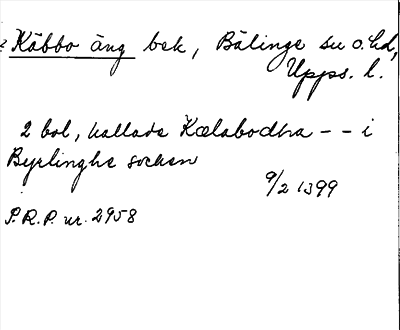 Käbbo äng bek, Bälinge su o. hd,
Upps. l.
2 bol, kallade Kælabodha - - i
Byrlinghe socken
9/2 1399
P.R.P. nr. 2958